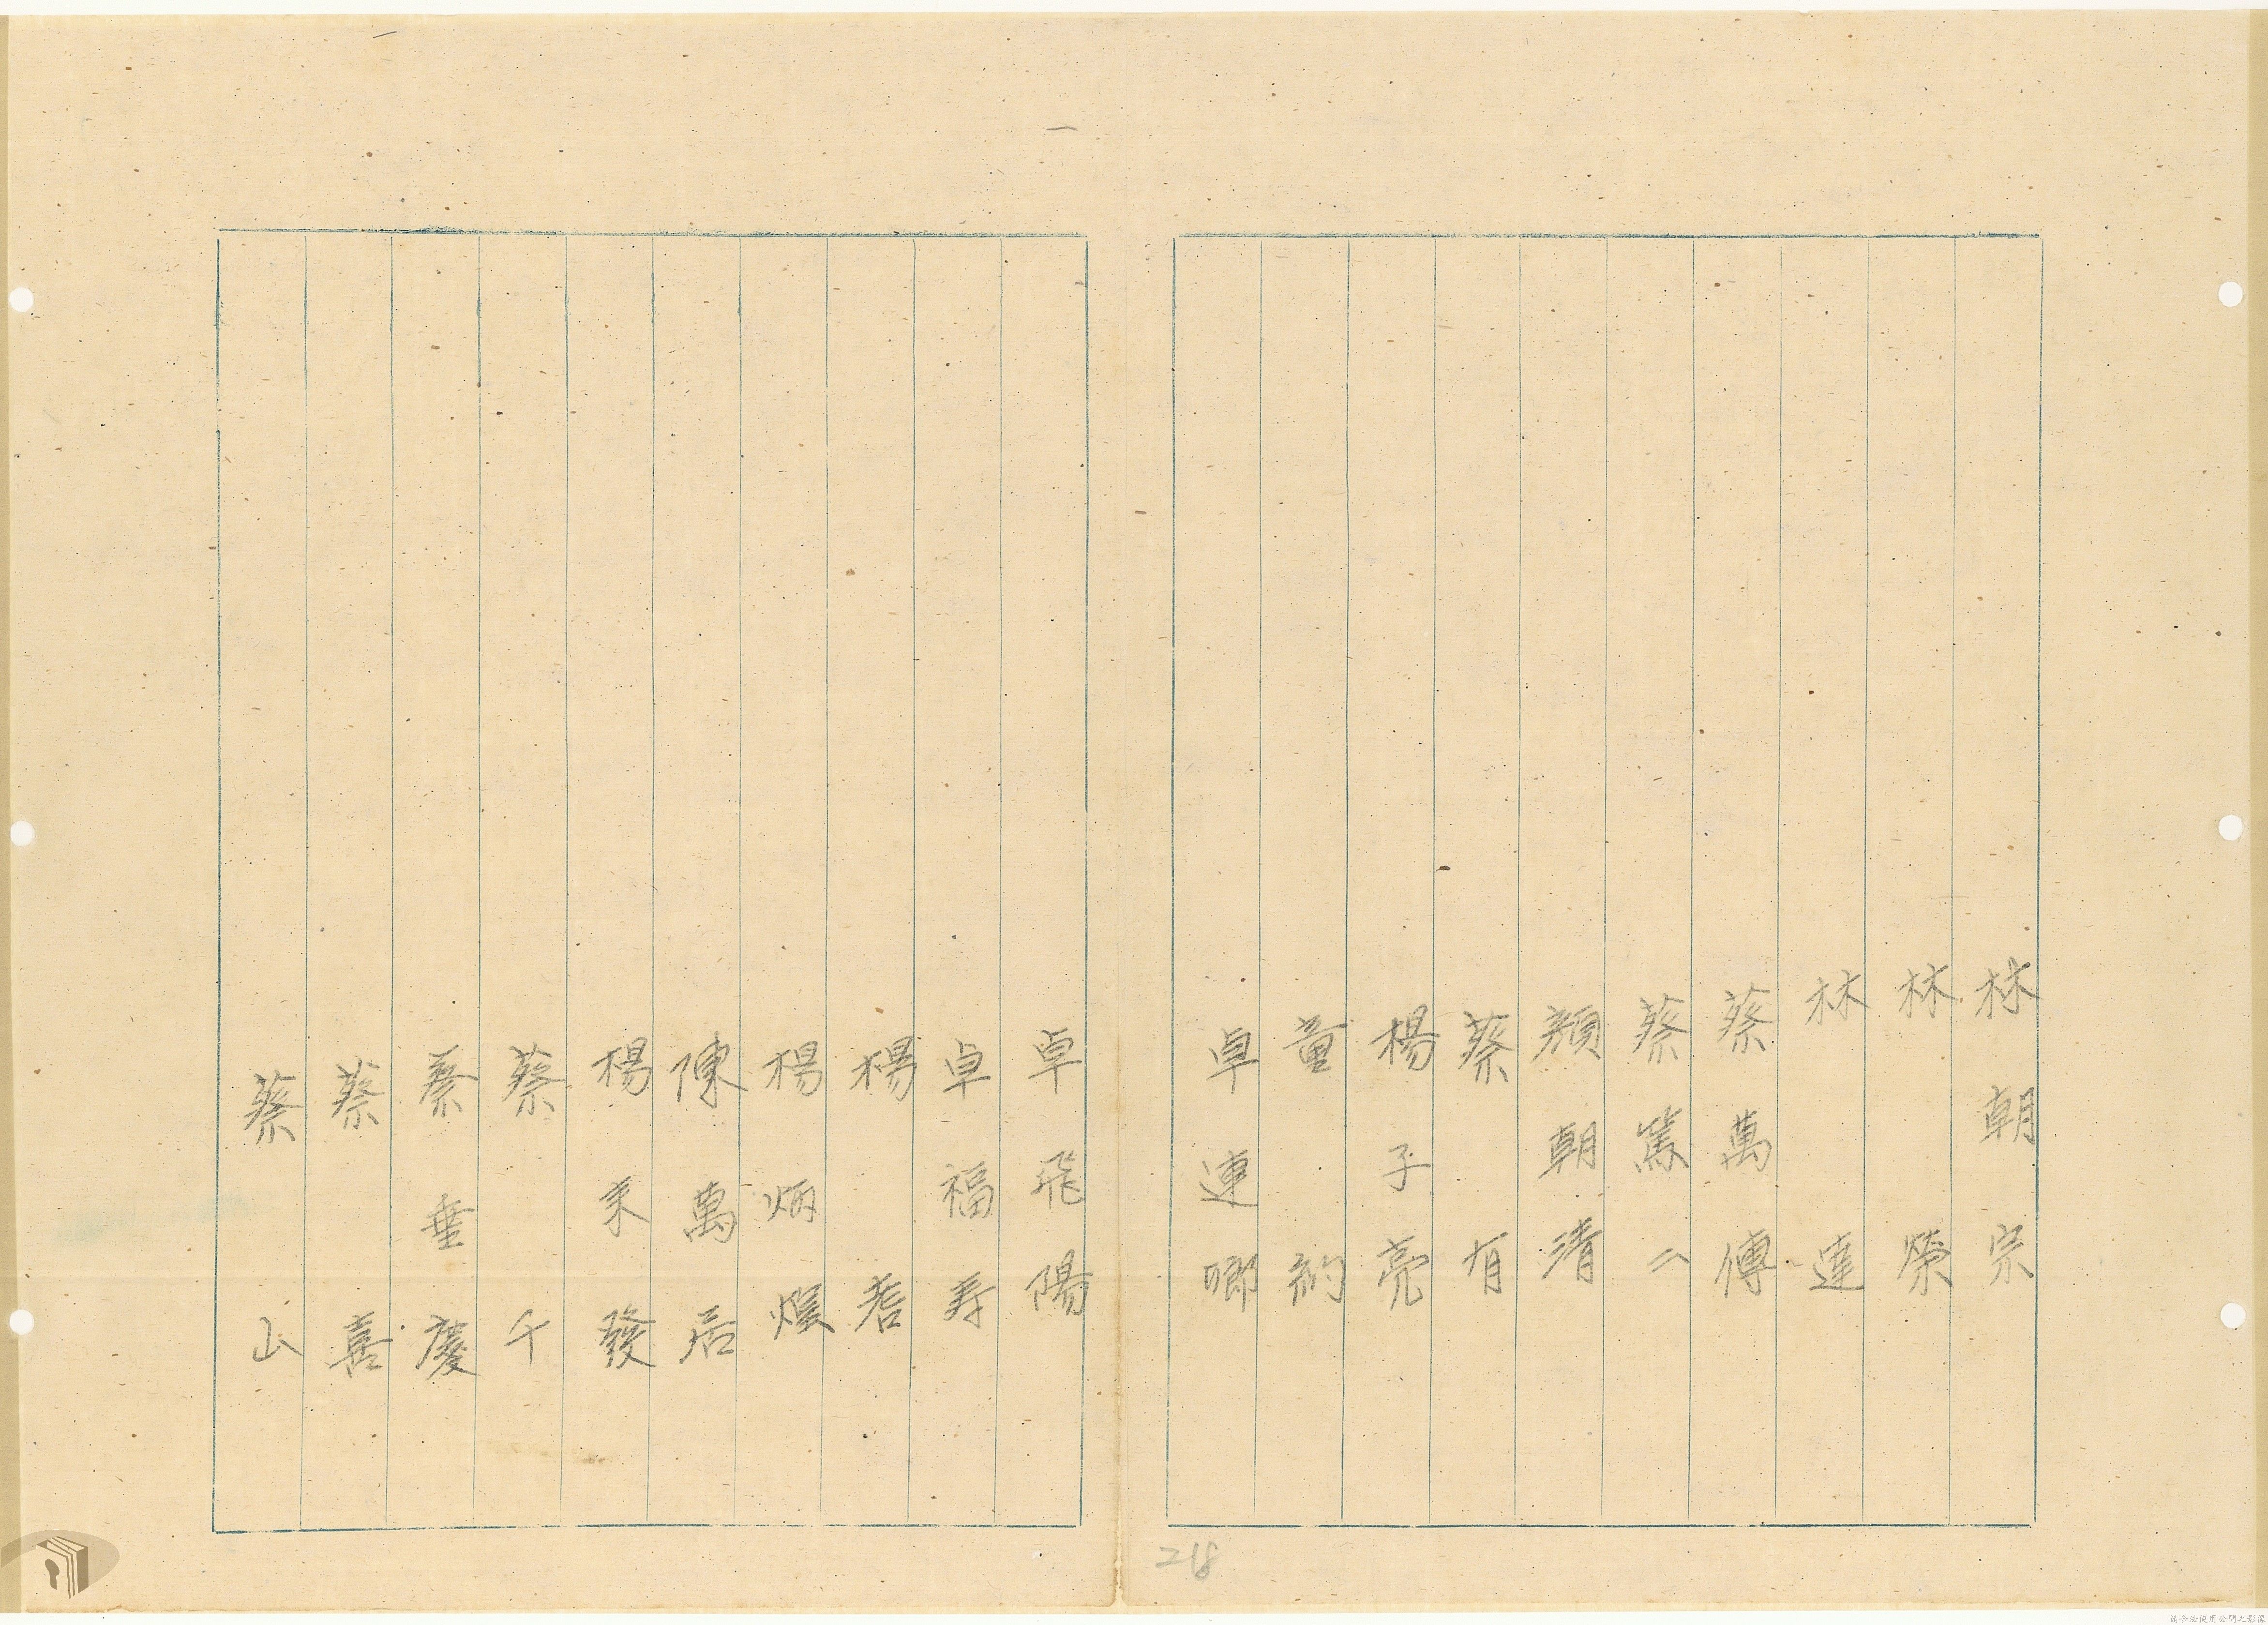 林朝宗
林榮
林達
蔡萬傳
蔡篤二
顏朝清
蔡有
楊子亮
童約
卓連卿
卓飛陽
卓福寿
楊
楊炳煌
陳萬居
楊來發
蔡千
蔡垂慶
蔡喜
蔡山
218
請合法使用公開之影像